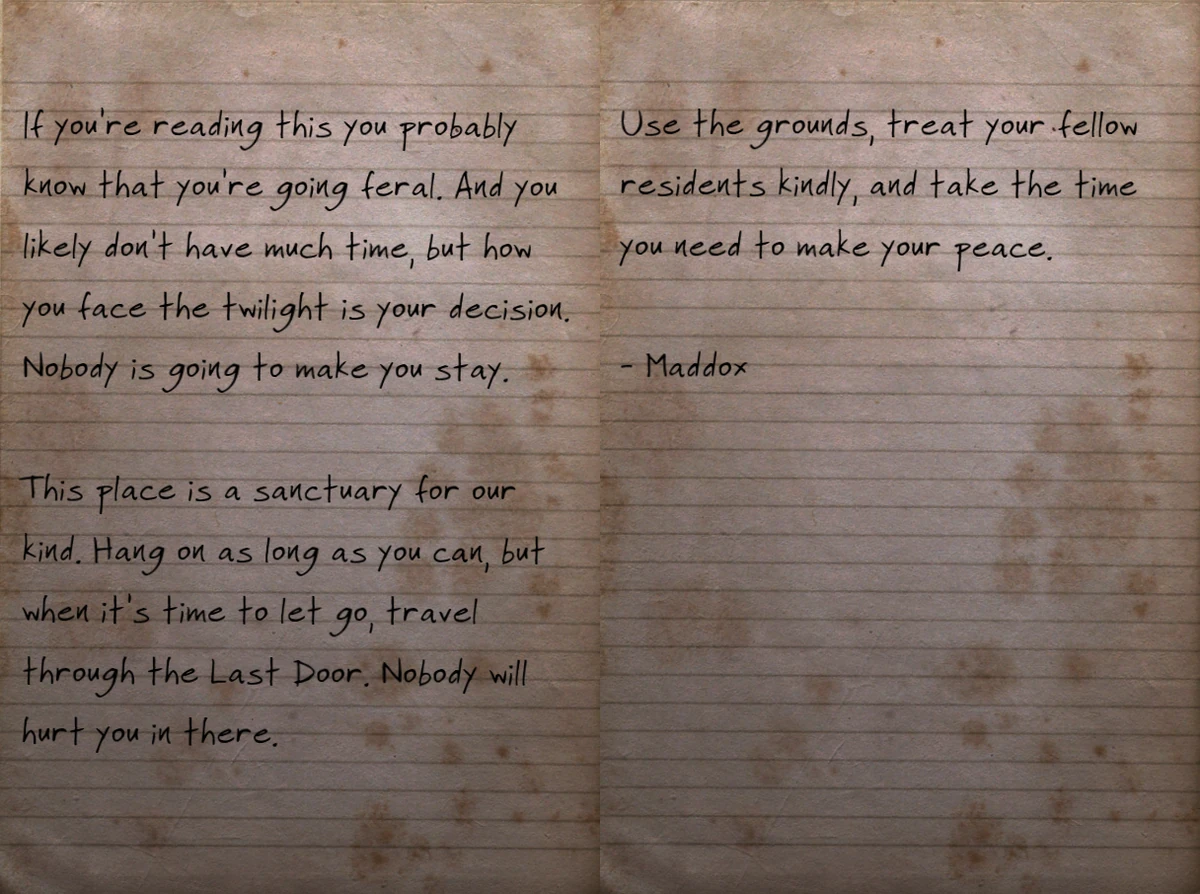 If you're reading this you probably
know that you're going feral. And you
likely don't have much time, but how
you face the twilight is your decision.
Nobody is going to make you stay.
This place is a sanctuary for our
kind. Hang on as long as you can, but
when it's time to let go, travel
through the Last Door. Nobody will
hurt you in there.
Use the grounds, treat your fellow
residents kindly, and take the time
you need to make your peace.
- Maddox